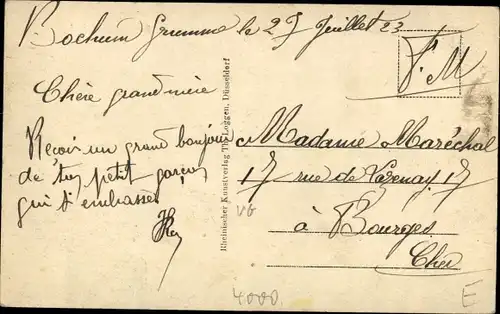 Bochum Grumme le 27 Juillet 23
F. M
Chère grand mère
Recoir un grand bonjour
de ton petit garçon
qui t'embrasse
Rheinischer Kunstverlag Th. Loggen, Düsseldorf
Madame Maréchal
17 rue de Varenay 17
à Bourges
Cher
VG
4000
E